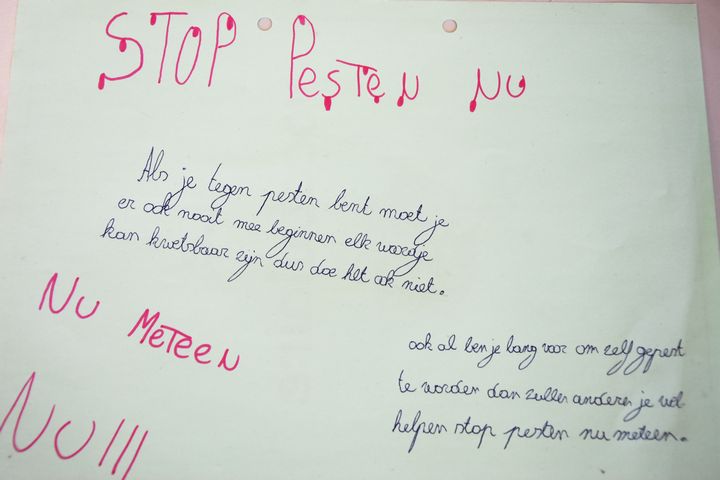 STOP Pesten NU
Als je tegen pesten bent moet je
er ook nooit mee beginnen elk woordje
kan kwetsbaar zijn dus doe het ook niet.
NU MeTeeN
NU!!!
ook al ben je bang voor om zelf gepest
te worden dan zullen anderen je wel
helpen stop pesten nu meteen.